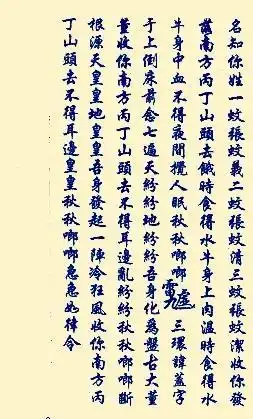 名知你姓一蚊張蚊義二蚊張蚊清三蚊張蚊潔收你發
落南方丙丁山頭去餓時食得水牛身上肉溫時食得水
牛身中血不得夜間攪人眠秋秋啷啷 三環諱蓋字
于上倒床前念七遍天紛紛地紛紛吾身化為盤古大董
董收你南方丙丁山頭去不得耳邊亂紛紛秋秋啷啷斷
根源天皇皇地皇皇吾身發起一陣冷狂風收你南方丙
丁山頭去不得耳邊皇皇秋秋啷啷急急如律令